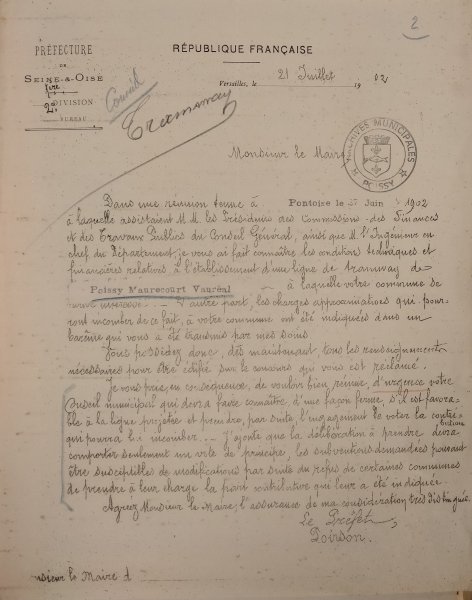 2
PRÉFECTURE
DE
SEINE-&-OISE
1ère
DIVISION
2e
BUREAU
RÉPUBLIQUE FRANÇAISE
Versailles, le 21 Juillet 1902
Conseil
Tramway
ARCHIVES MUNICIPALES
POISSY
Monsieur le Maire,
Dans une réunion tenue à Pontoise le 27 Juin 1902
à laquelle assistaient M.M. les Présidents des Commissions des Finances
et des Travaux Publics du Conseil Général, ainsi que M. l'Ingénieur en
chef du Département, je vous ai fait connaître les conditions techniques et
financières relatives à l'établissement d'une ligne de tramway de
Poissy Maurecourt Vauréal à laquelle votre commune se
intéressée. D'autre part, les charges approximatives qui pour-
ront incomber de ce fait, à votre commune ont été indiquées dans un
barème qui vous a été transmis par mes soins.
Vous possédez donc, dès maintenant, tous les renseignements
nécessaires pour être édifié sur le concours qui vous est réclamé.
Je vous prie, en conséquence, de vouloir bien, réunir d'urgence votre
Conseil municipal qui devra faire connaître, d'une façon ferme, s'il est favora-
ble à la ligne projetée et prendre, par suite, l'engagement de voter la contri-
bution
qui pourra lui incomber. - J'ajoute que la délibération à prendre devra
comporter seulement un vote de principe, les subventions demandées pouvant
être susceptibles de modifications par suite du refus de certaines communes
de prendre à leur charge la part contributive qui leur a été indiquée
Agréez Monsieur le Maire, l'assurance de ma considération très distinguée.
Le Préfet,
Poirson.
nsieur le Maire d